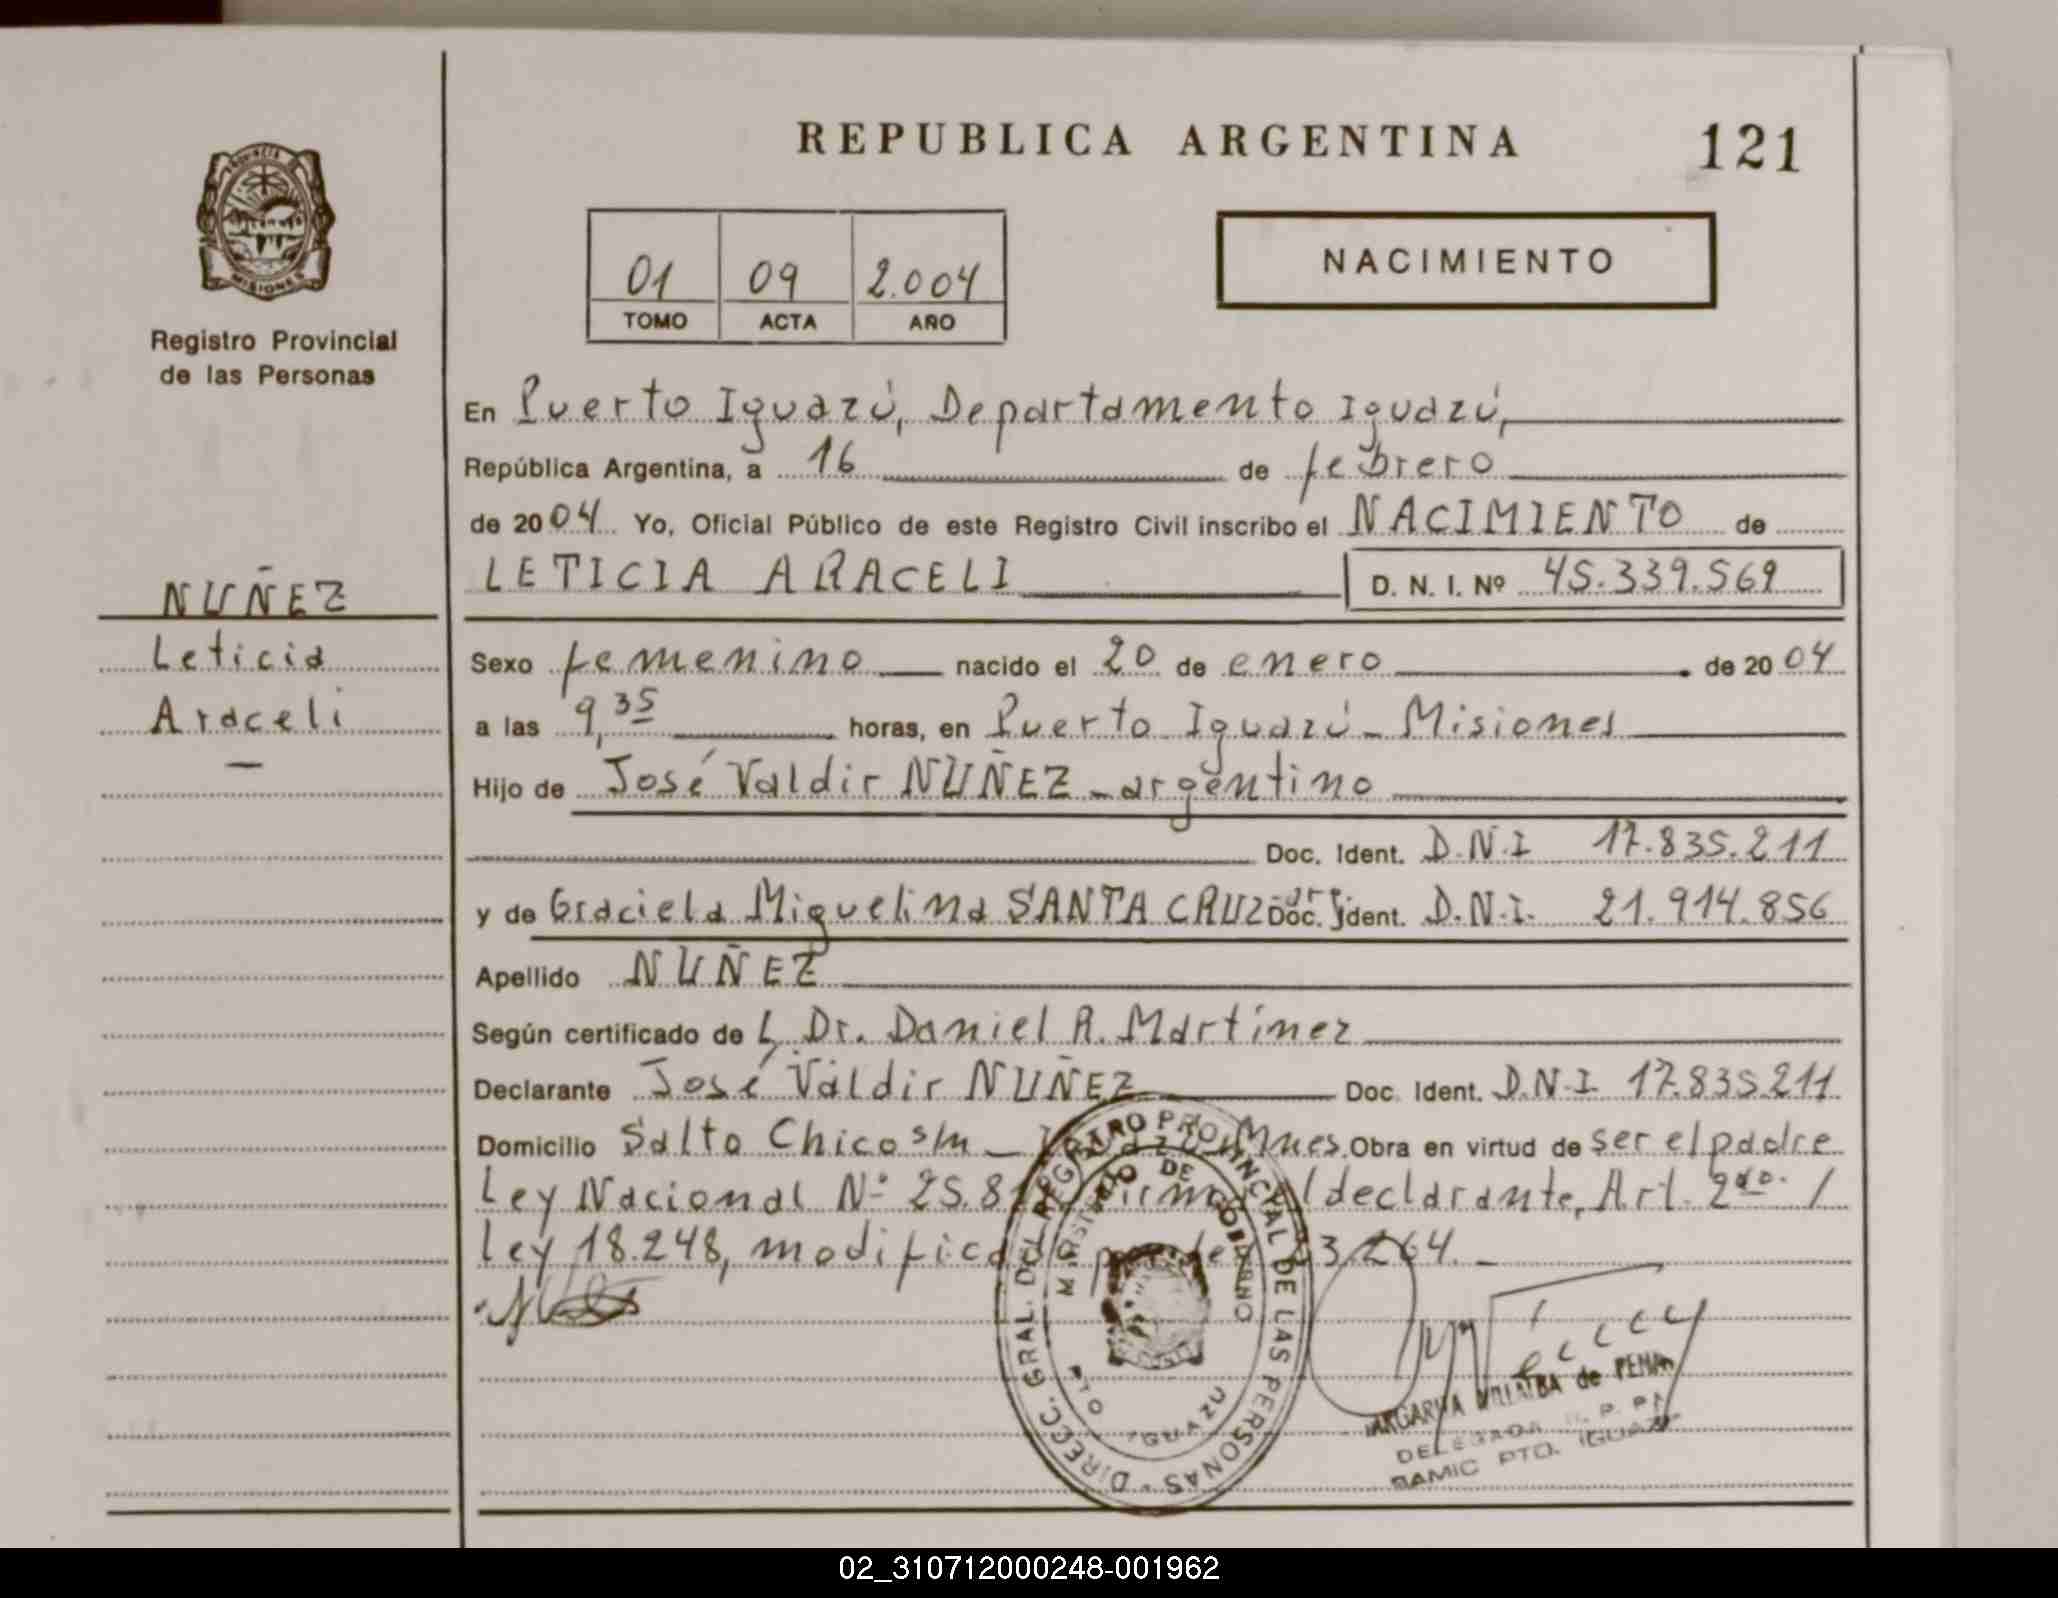 REPUBLICA ARGENTINA
121
PROVINCIA DE
MISIONES
Registro Provincial
de las Personas
01 09 2.004
TOMO ACTA AÑO
NACIMIENTO
En Puerto Iguazú, Departamento Iguazú,
República Argentina, a 16 de febrero
de 2004 Yo, Oficial Público de este Registro Civil inscribo el NACIMIENTO de
LETICIA ARACELI D. N. I. Nº 45.339.569
NUÑEZ
Leticia
Araceli
Sexo femenino nacido el 20 de enero de 2004
a las 9,35 horas, en Puerto Iguazú - Misiones
Hijo de José Valdir NUÑEZ - argentino
Doc. Ident. D.N.I 17.835.211
y de Graciela Miguelina SANTA CRUZ arg. Doc. Ident. D.N.I. 21.914.856
Apellido NUÑEZ
Según certificado de L Dr. Daniel R. Martínez
Declarante José Valdir NUÑEZ Doc. Ident. D.N.I. 17.835.211
Domicilio Salto Chico s/n - Mnes. Obra en virtud de ser el padre
Ley Nacional Nº 25.8 declarante, Art. 2do. /
Ley 18.248, 
DIRECC. GRAL. DEL REGISTRO PROVINCIAL DE LAS PERSONAS
MINISTERIO DE GOBIERNO
PTO IGUAZU
MARGARITA VILLALBA de PENA
DELEGADA R. P. P.
BAMIC PTO. IGUAZU
02_310712000248-001962